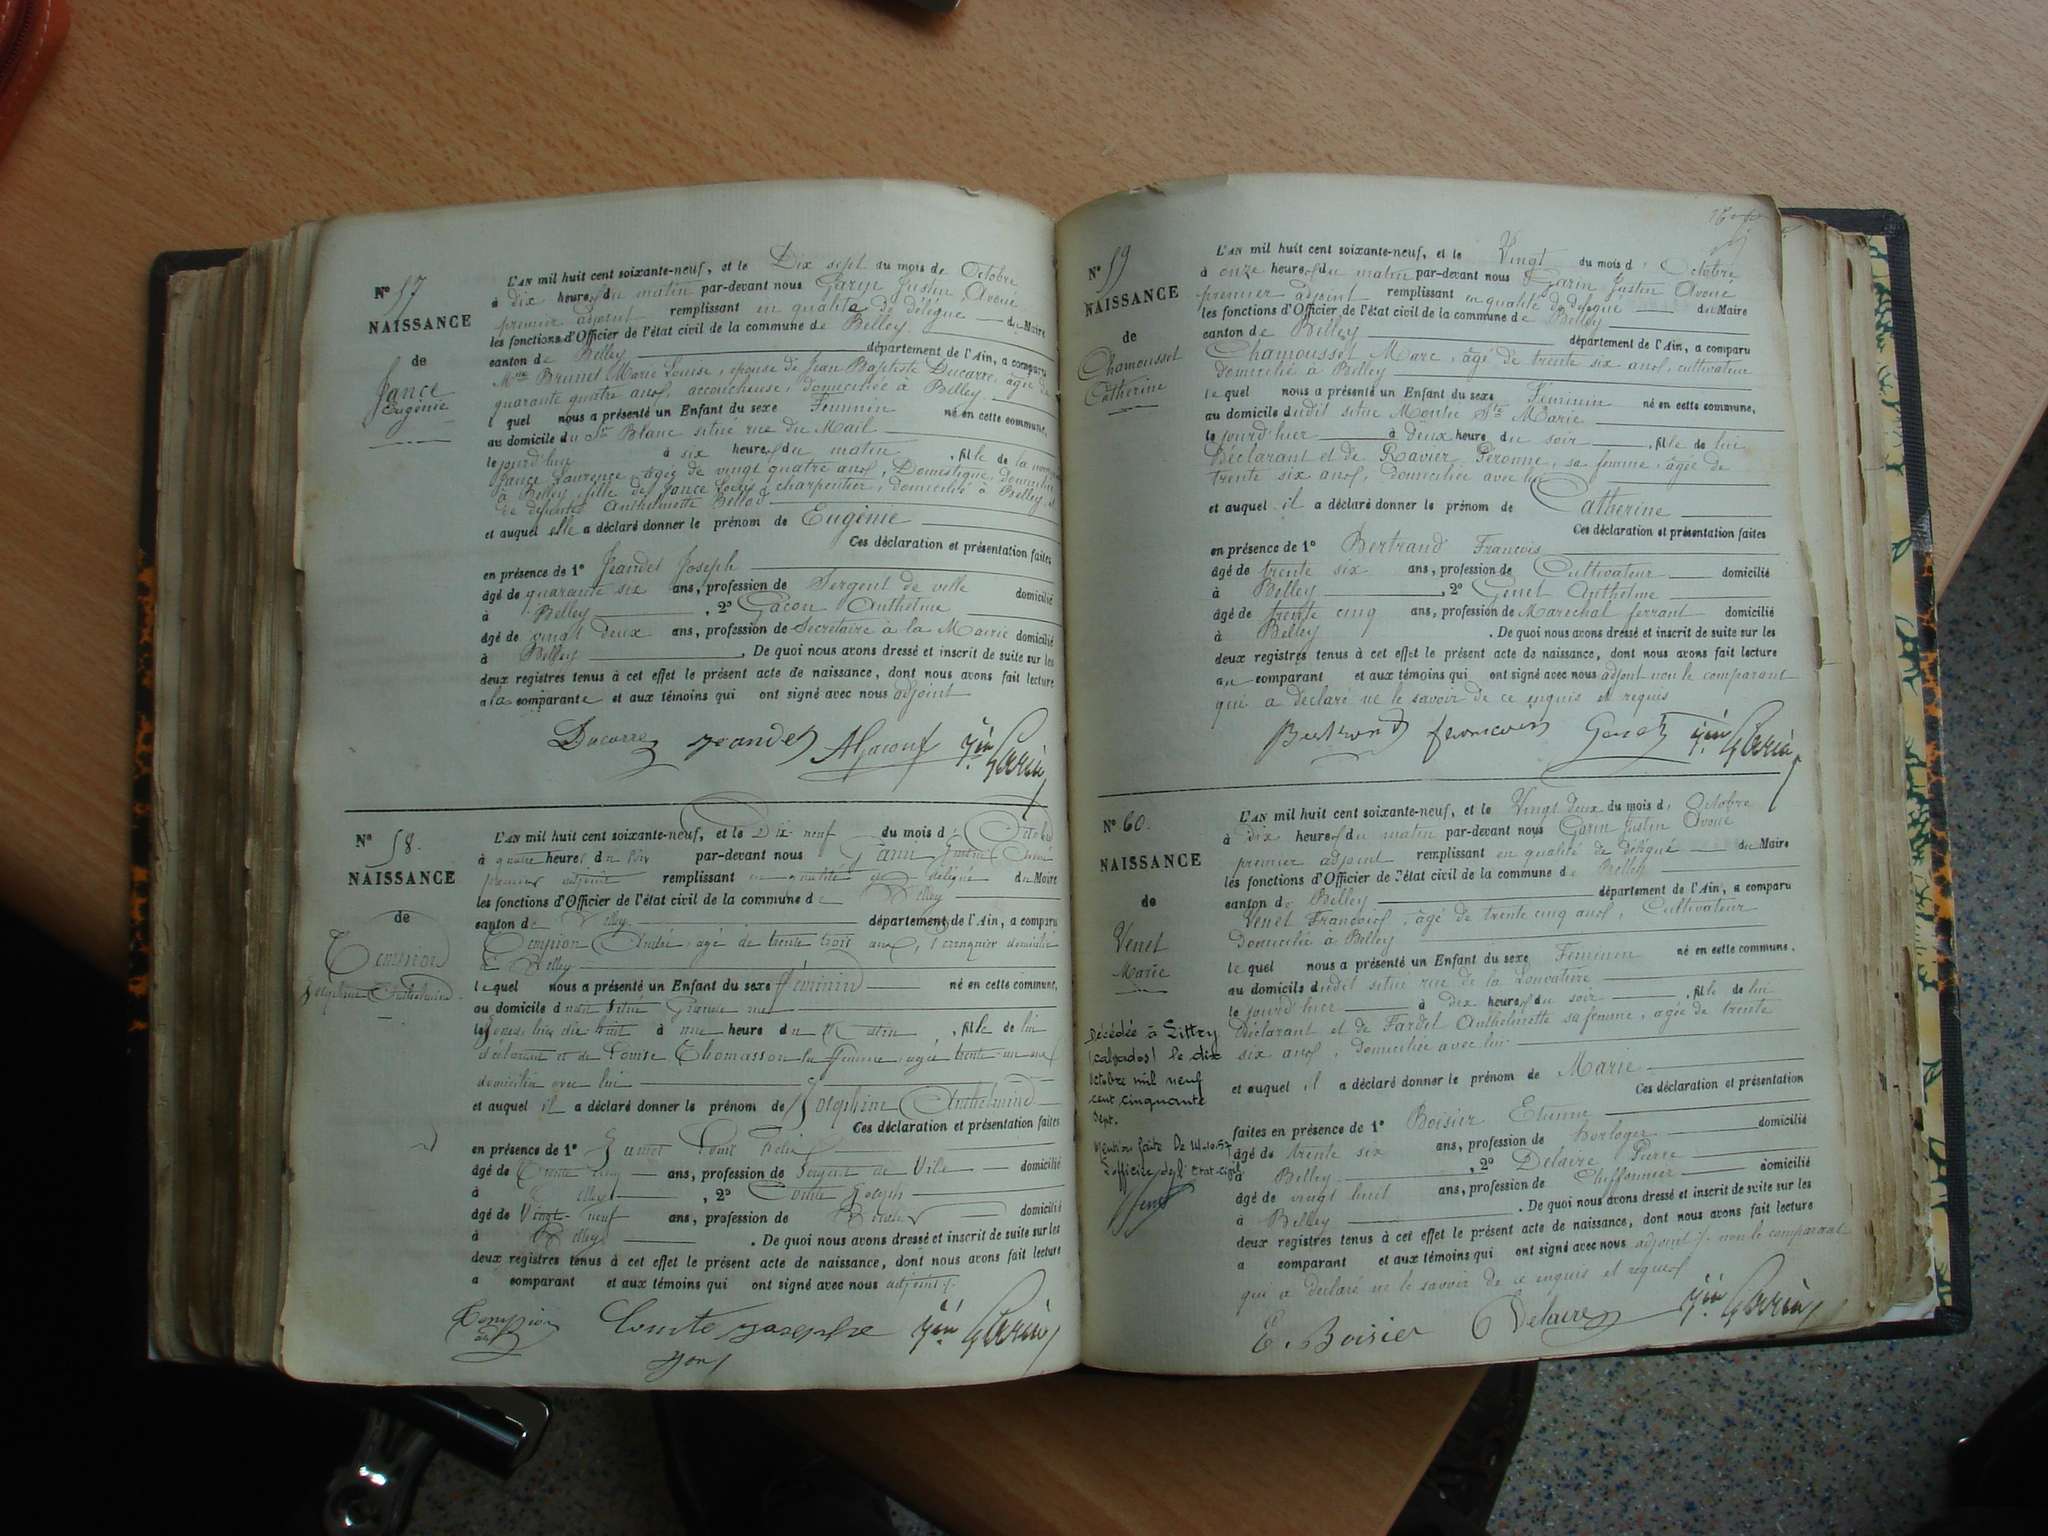 N° 57
NAISSANCE
de
Jance
Eugénie
L'AN mil huit cent soixante-neuf, et le Dix sept du mois de Octobre
à dix heures du matin par-devant nous Garin Justin Avoué
premier adjoint remplissant en qualité de délégué du Maire
les fonctions d'Officier de l'état civil de la commune de Belley
canton de Belley département de l'Ain, a comparu
Mme Brunet Marie Louise, épouse de Jean Baptiste Ducarre, âgée de
quarante quatre ans, accoucheuse, domiciliée à Belley
l quel nous a présenté un Enfant du sexe Féminin né en cette commune,
au domicile du Sr Blanc situé rue du Mail
le jourd'hui à six heures du matin, fille de la nommée
Jance Laurence âgée de vingt quatre ans, Domestique, domiciliée
à Belley, fille de Jance Louis, charpentier, domicilié à Belley, et
de défunte Anthelmette Bellod
et auquel elle a déclaré donner le prénom de Eugénie
Ces déclaration et présentation faites
en présence de 1° Jeandet Joseph
âgé de quarante six ans, profession de Sergent de ville domicilié
à Belley, 2° Gacon Anthelme
âgé de vingt deux ans, profession de Secrétaire à la Mairie domicilié
à Belley. De quoi nous avons dressé et inscrit de suite sur les
deux registres tenus à cet effet le présent acte de naissance, dont nous avons fait lecture
a la comparante et aux témoins qui ont signé avec nous adjoint
Ducarre Jeandet AGacon Jin Garin
N° 58.
NAISSANCE
de
Tempion
Joséphine Anthelmine
L'AN mil huit cent soixante-neuf, et le Dix neuf du mois d' Octobre
à quatre heures du soir par-devant nous Garin Justin Avoué
premier adjoint remplissant en qualité de délégué du Maire
les fonctions d'Officier de l'état civil de la commune de Belley
canton de Belley département de l'Ain, a comparu
Tempion André, âgé de trente trois ans, domicilié
à Belley
le quel nous a présenté un Enfant du sexe féminin né en cette commune,
au domicile dudit situé Grande rue
le jour hier dix huit à une heure du Matin, fille de lui
déclarant et de Louise Thomasson sa femme, âgée trente un ans
domiciliée avec lui
et auquel il a déclaré donner le prénom de Joséphine Anthelmine
Ces déclaration et présentation faites
en présence de 1° Louis
âgé de Trente cinq ans, profession de Sergent de Ville domicilié
à Belley, 2° Comte Joseph
âgé de Vingt-neuf ans, profession de domicilié
à Belley. De quoi nous avons dressé et inscrit de suite sur les
deux registres tenus à cet effet le présent acte de naissance, dont nous avons fait lecture
a comparant et aux témoins qui ont signé avec nous adjoint
Tempion Comte Josephe Jin Garin
N° 59
NAISSANCE
de
Chamousset
Catherine
L'AN mil huit cent soixante-neuf, et le Vingt du mois d' Octobre
à onze heures du matin par-devant nous Garin Justin Avoué
premier adjoint remplissant en qualité de délégué du Maire
les fonctions d'Officier de l'état civil de la commune de Belley
canton de Belley département de l'Ain, a comparu
Chamousset Marc, âgé de trente six ans, cultivateur
domicilié à Belley
le quel nous a présenté un Enfant du sexe Féminin né en cette commune,
au domicile dudit situé Montée Ste Marie
le jourd'hier à deux heure du soir, fille de lui
Déclarant et de Ravier Péronne, sa femme, âgée de
trente six ans, domiciliée avec lui
et auquel il a déclaré donner le prénom de Catherine
Ces déclaration et présentation faites
en présence de 1° Bertrand François
âgé de trente six ans, profession de Cultivateur domicilié
à Belley, 2° Genet Anthelme
âgé de trente cinq ans, profession de Maréchal ferrant domicilié
à Belley. De quoi nous avons dressé et inscrit de suite sur les
deux registres tenus à cet effet le présent acte de naissance, dont nous avons fait lecture
au comparant et aux témoins qui ont signé avec nous adjoint non le comparant
qui a déclaré ne le savoir de ce enquis et requis
Bertrand francois Genet Jin Garin
N° 60.
NAISSANCE
de
Venet
Marie
Décédée à Littry
(calvados) le dix
octobre mil neuf
cent cinquante
sept.
Mention faite le 14.10.57
L'officier de l'Etat-civil
L'AN mil huit cent soixante-neuf, et le Vingt deux du mois d' Octobre
à dix heures du matin par-devant nous Garin Justin Avoué
premier adjoint remplissant en qualité de délégué du Maire
les fonctions d'Officier de l'état civil de la commune de Belley
canton de Belley département de l'Ain, a comparu
Venet François, âgé de trente cinq ans, Cultivateur
Domicilié à Belley
le quel nous a présenté un Enfant du sexe Féminin né en cette commune.
au domicile dudit situé rue de la Louvatière
le jourd'hier à dix heures du soir, fille de lui
Déclarant et de Fardel Anthelmette sa femme, âgée de trente
six ans, domiciliée avec lui
et auquel il a déclaré donner le prénom de Marie
Ces déclaration et présentation
faites en présence de 1° Boisier Etienne
âgé de trente six ans, profession de horloger domicilié
à Belley, 2° Delaire Pierre
âgé de vingt huit ans, profession de Chiffonnier domicilié
à Belley. De quoi nous avons dressé et inscrit de suite sur les
deux registres tenus à cet effet le présent acte de naissance, dont nous avons fait lecture
a comparant et aux témoins qui ont signé avec nous adjoint, non le comparant
qui a déclaré ne le savoir de ce enquis et requis
E. Boisier Delaire Jin Garin